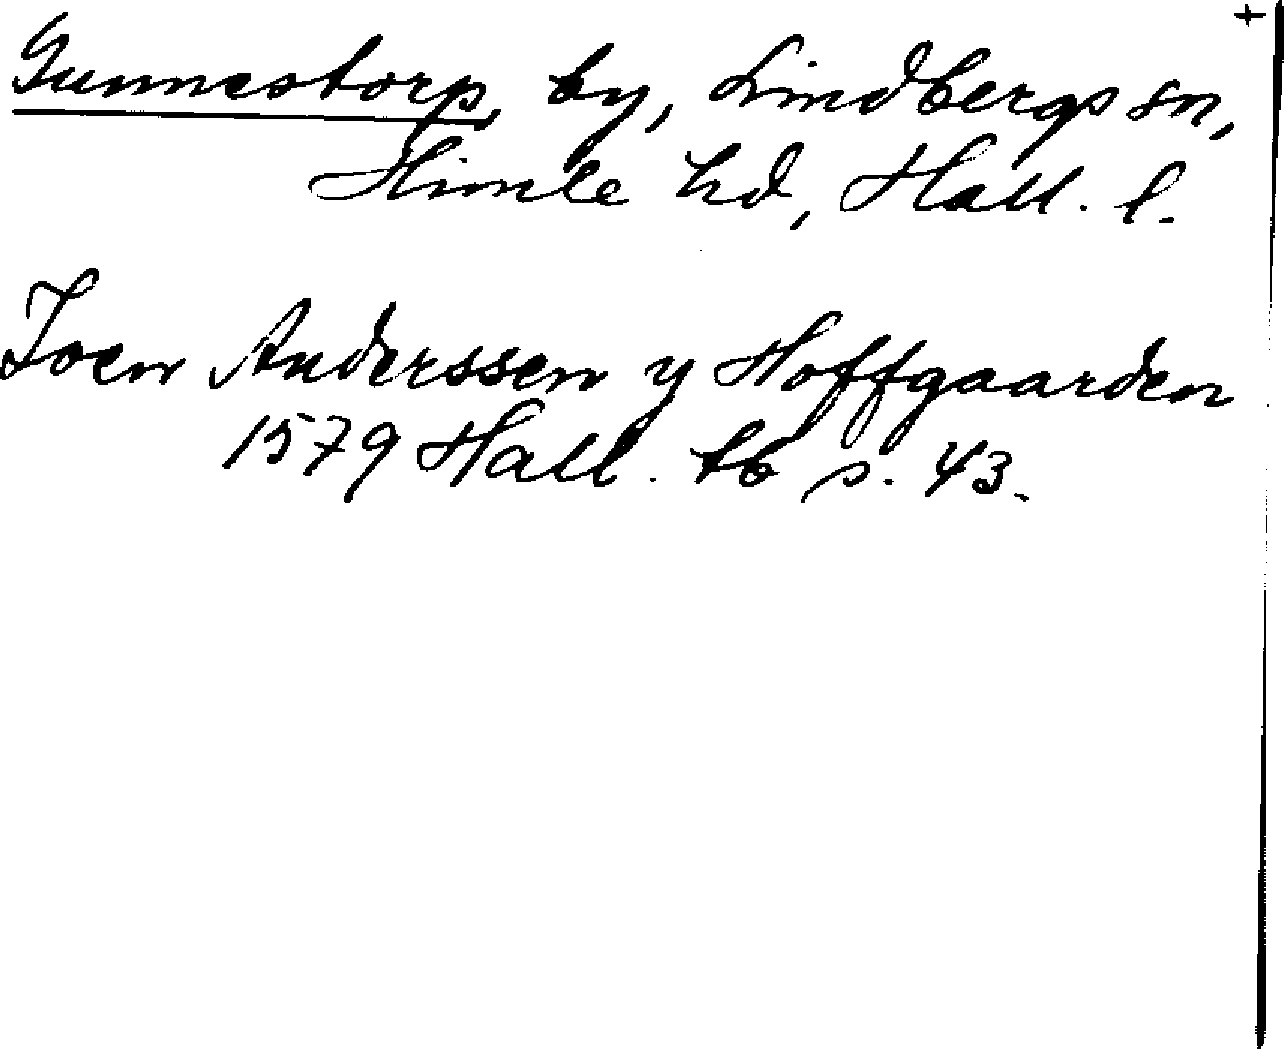 +
Gunnestorp, by, Lindbergs sn,
Himle hd, Hall. l.
Joen Anderssen y Hoffgaarden
1579 Hall. tb s. 43.